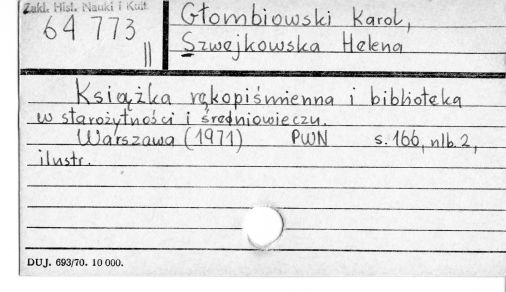 Zakł. Hist. Nauki i Kult.
64 773
II
Głombiowski Karol,
Szwejkowska Helena
Książka rękopiśmienna i biblioteka
w starożytności i średniowieczu.
Warszawa (1971) PWN s. 166, nlb. 2,
ilustr.
DUJ. 693/70. 10 000.